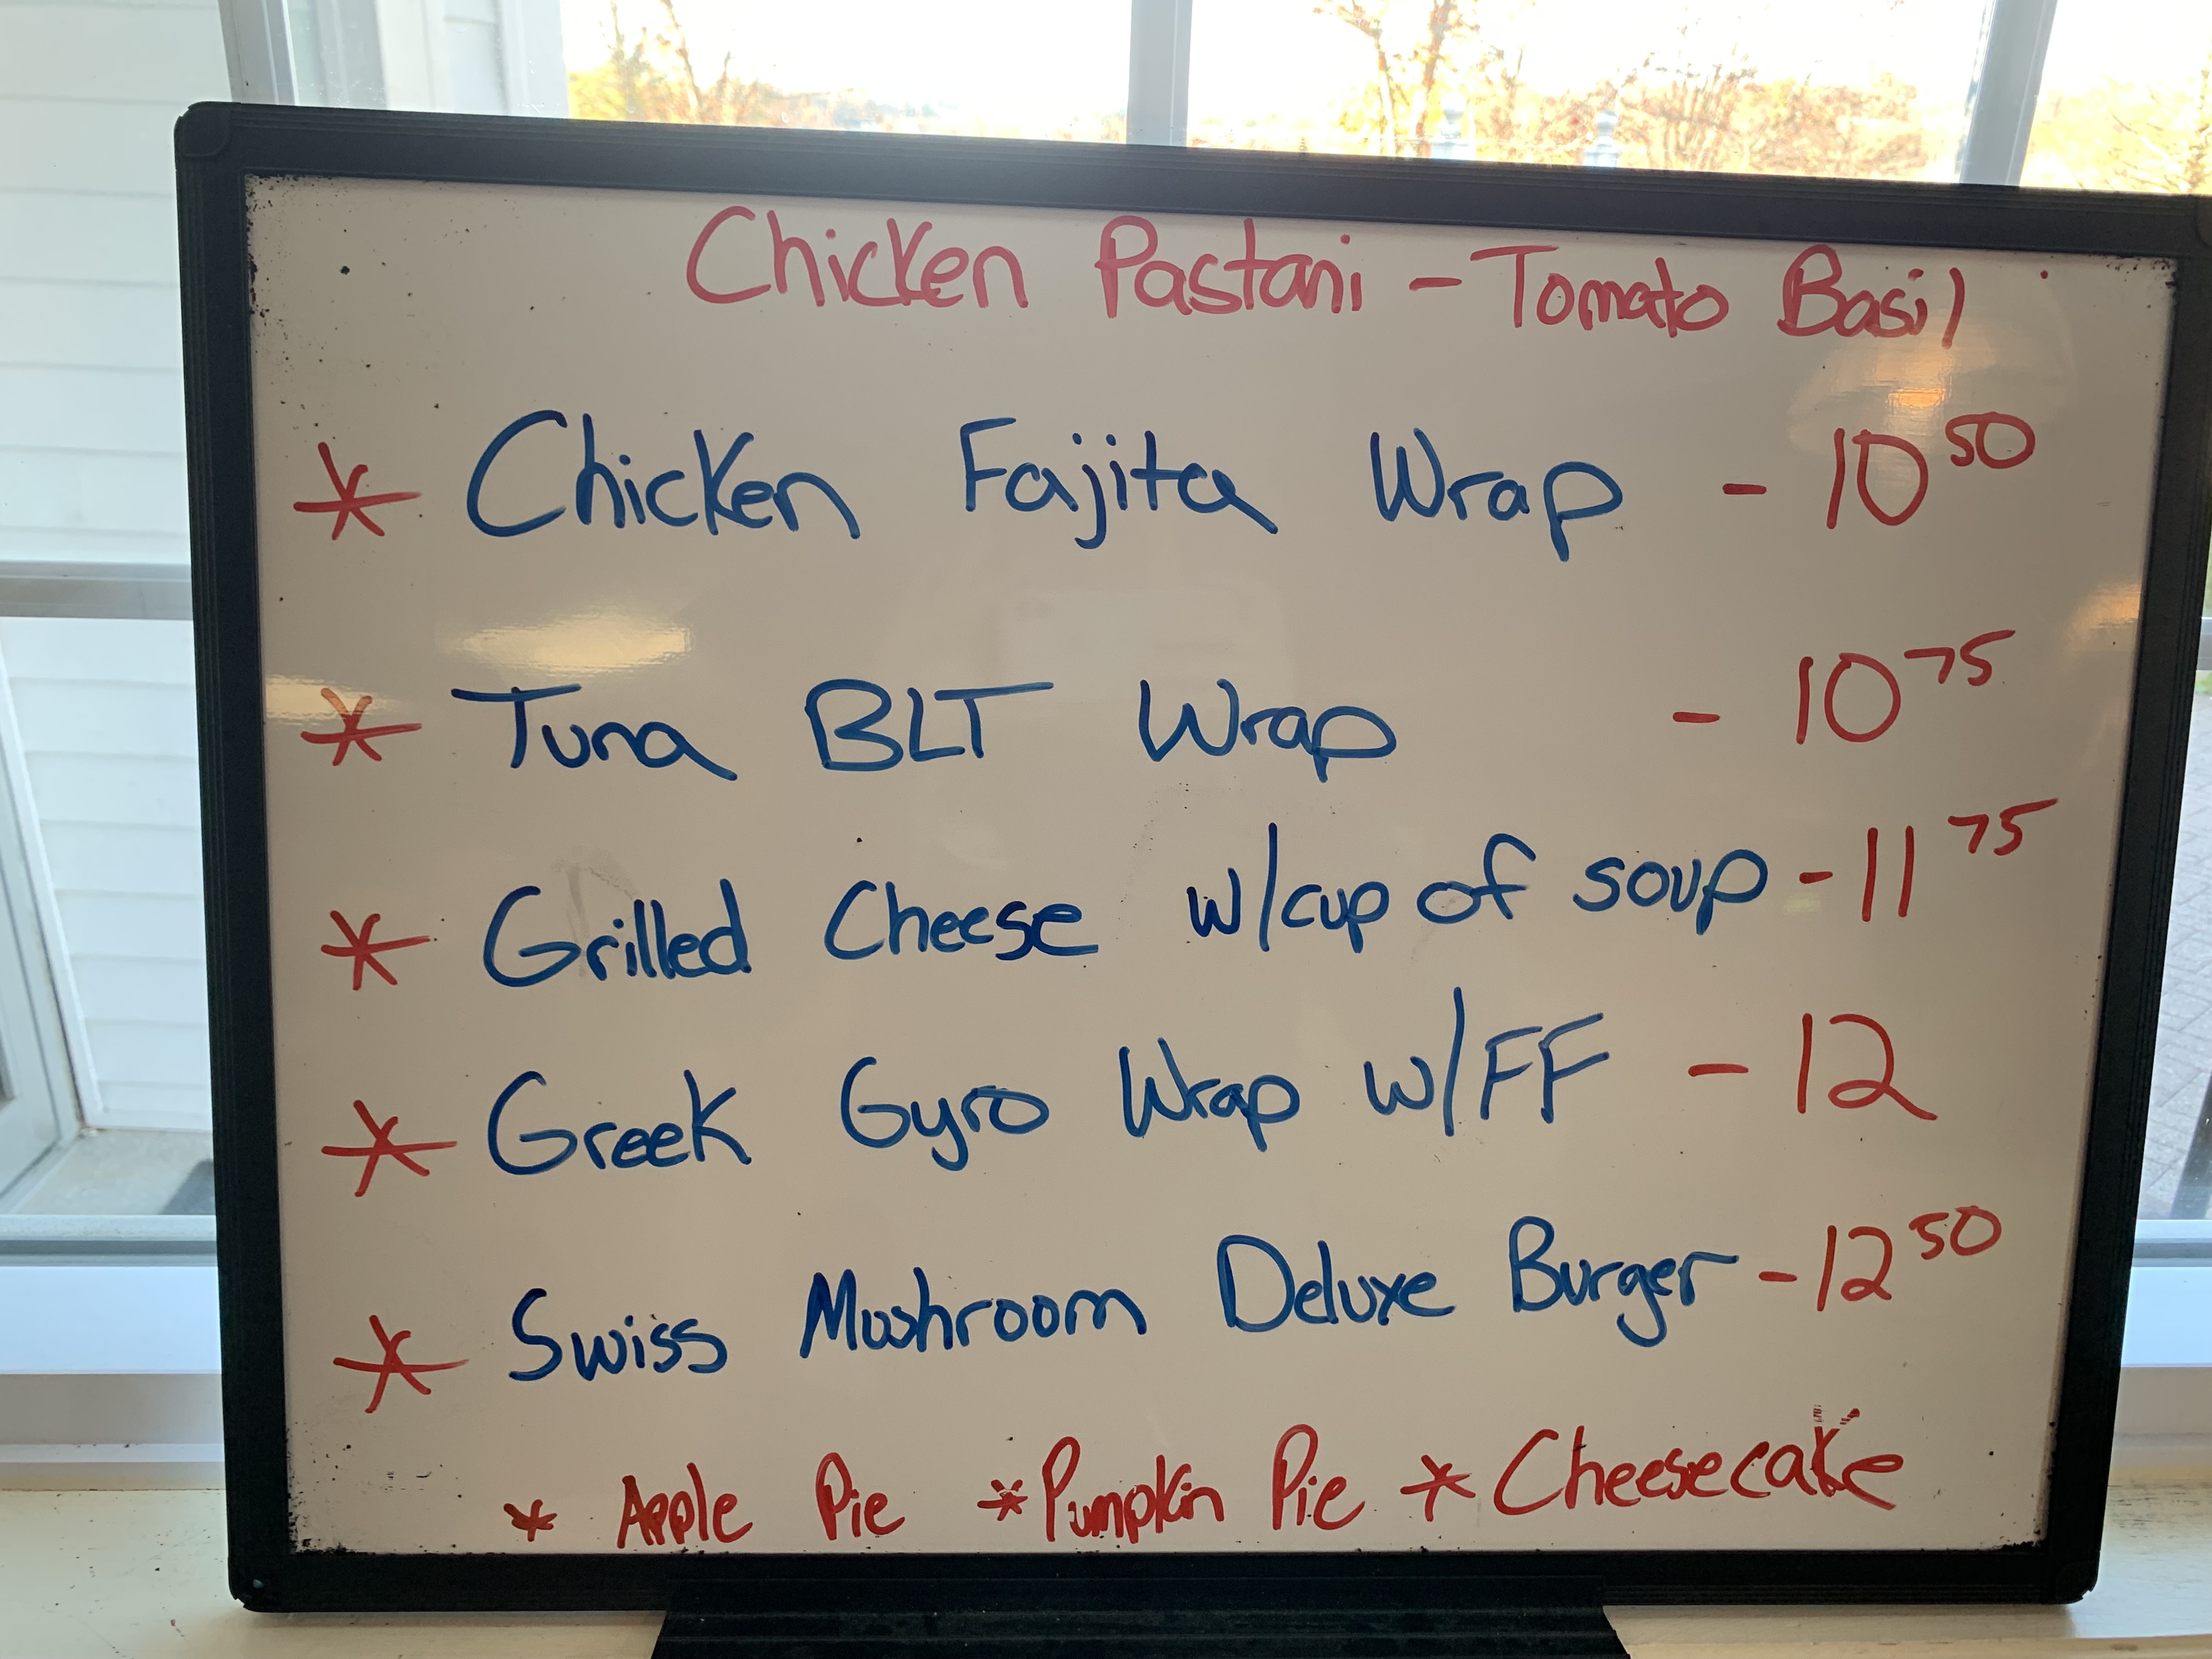 Chicken Pastani - Tomato Basil
* Chicken Fajita Wrap - 10 50
* Tuna BLT Wrap - 10 75
* Grilled Cheese w/cup of soup - 11 75
* Greek Gyro Wrap w/FF - 12
* Swiss Mushroom Deluxe Burger - 12 50
* Apple Pie * Pumpkin Pie * Cheesecake